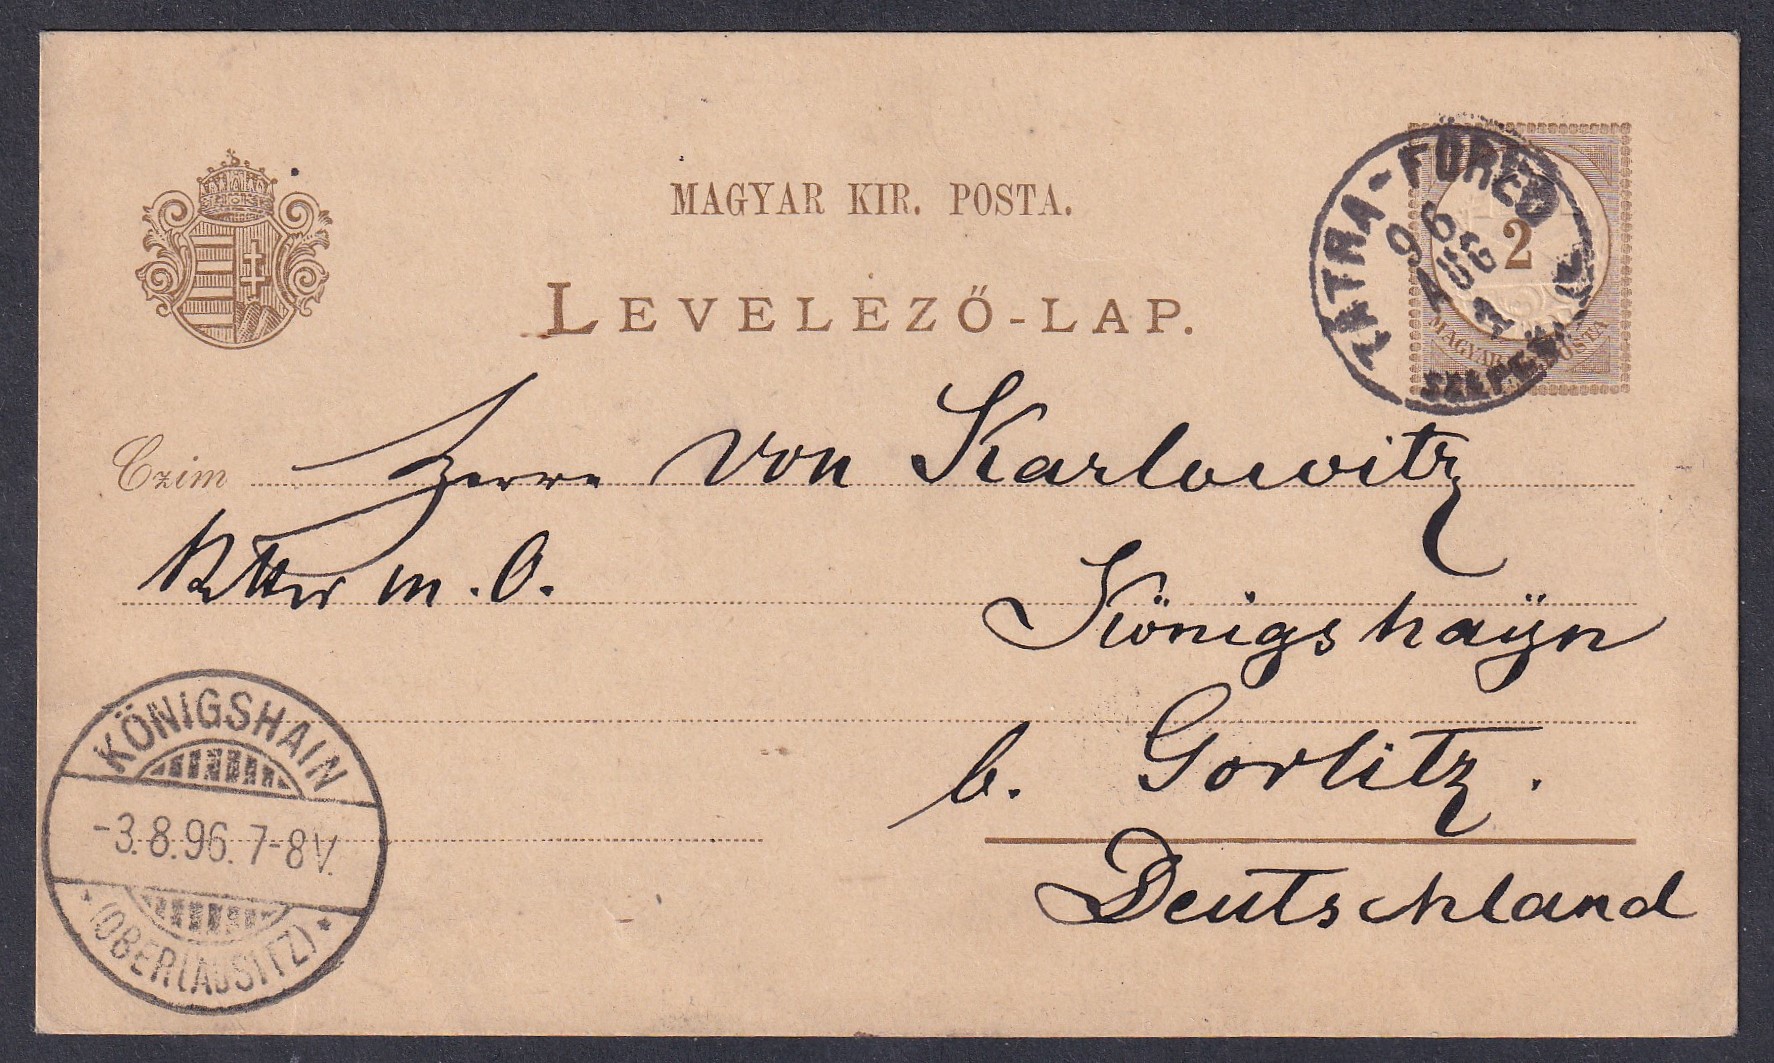 MAGYAR KIR. POSTA.
LEVELEZŐ-LAP.
TÁTRA-FÜRED
96
2
MAGYAR POSTA
Czim
Herrn von Karlowitz
Ritter m. O.
Königshayn
b. Gorlitz.
Deutschland
KÖNIGSHAIN
-3.8.96. 7-8V.
* (OBERLAUSITZ) *